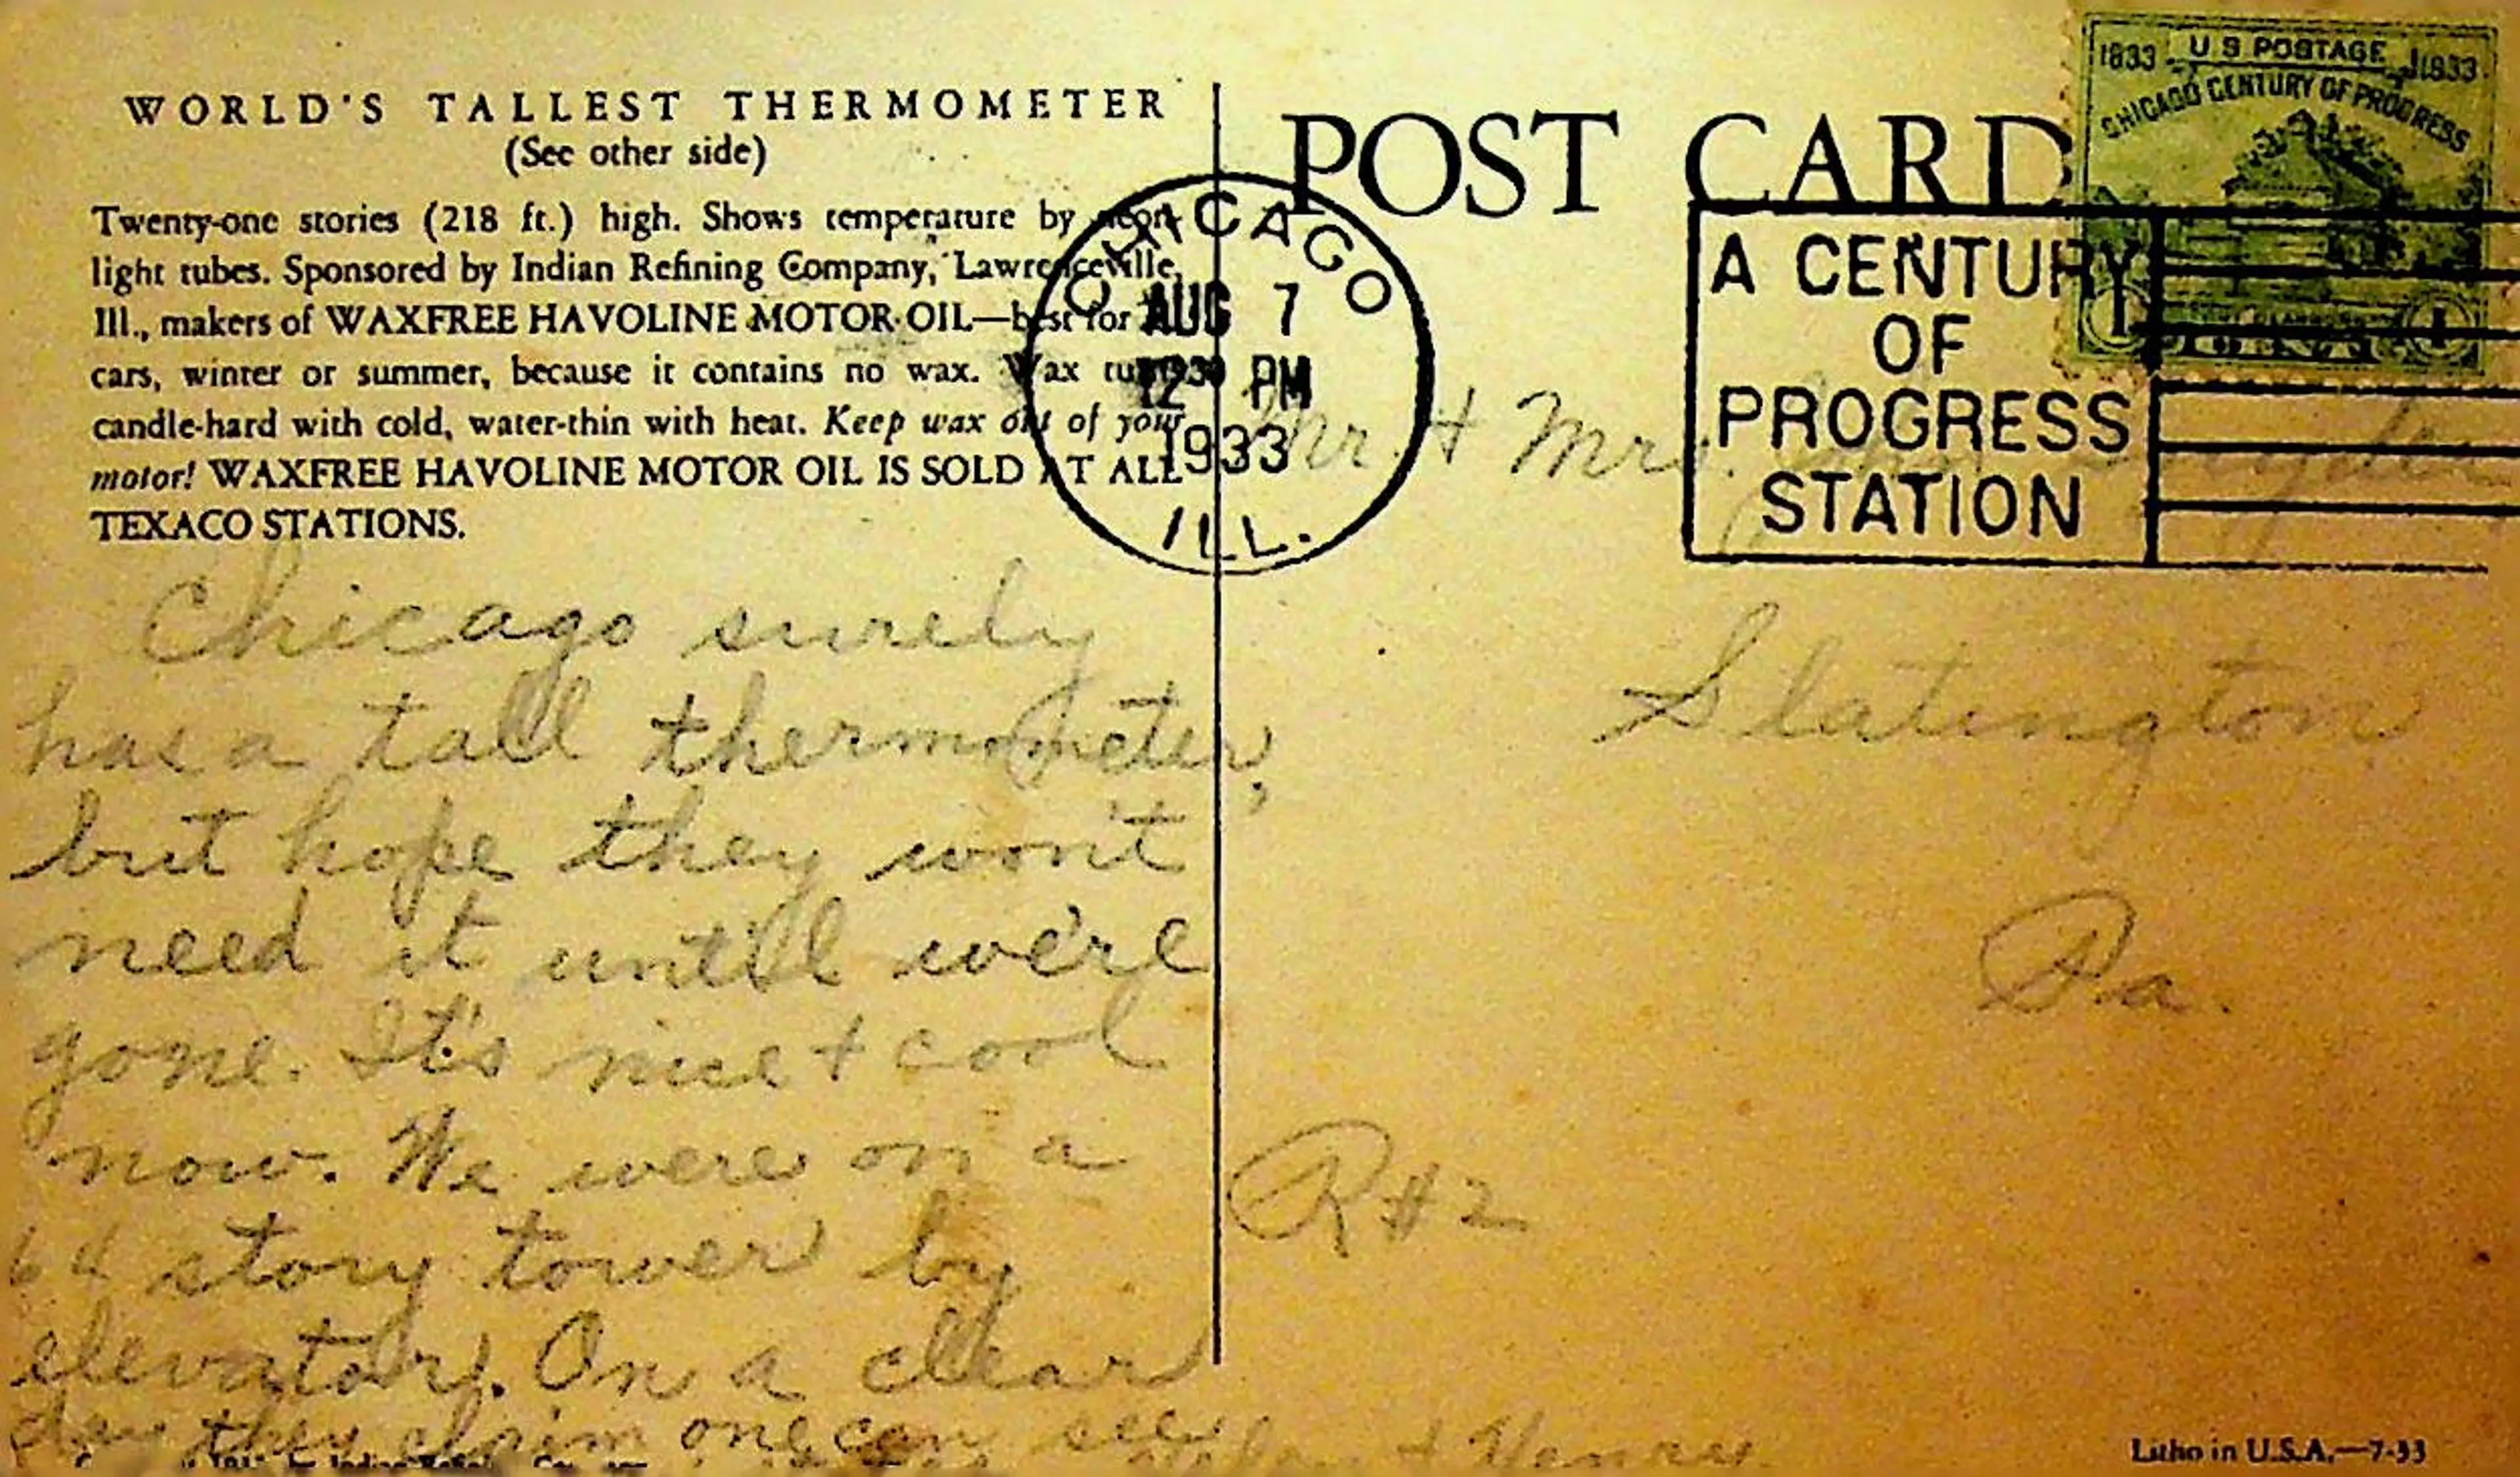 WORLD'S TALLEST THERMOMETER
(See other side)
Twenty-one stories (218 ft.) high. Shows temperature by neon
light tubes. Sponsored by Indian Refining Company, Lawrenceville,
Ill., makers of WAXFREE HAVOLINE MOTOR OIL—best for
cars, winter or summer, because it contains no wax. Wax turns
candle-hard with cold, water-thin with heat. Keep wax out of your
motor! WAXFREE HAVOLINE MOTOR OIL IS SOLD AT ALL
TEXACO STATIONS.
Chicago surely
has a tall thermometer,
but hope they won't
need it until we're
gone. It's nice + cool
now. We were on a
64 story tower by
elevator. On a clear
day they claim one can see
+ Henry
POST CARD
1833 U S POSTAGE 1933
CHICAGO CENTURY OF PROGRESS
1 1
CHICAGO
AUG 7
12 PM
1933
ILL.
A CENTURY
OF
PROGRESS
STATION
Mr. + Mrs.
Slatington
Pa.
R#2
Litho in U.S.A.—7-33